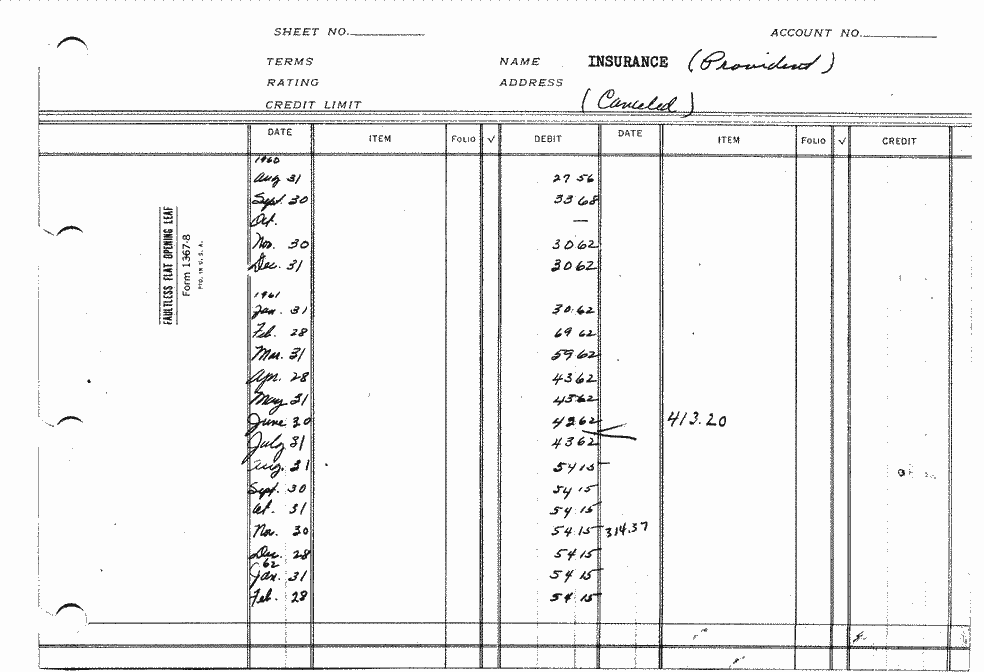 SHEET NO. ACCOUNT NO.
TERMS NAME INSURANCE (Provident)
RATING ADDRESS
CREDIT LIMIT (Canceled)
DATE ITEM FOLIO √ DEBIT DATE ITEM FOLIO √ CREDIT
1960
Aug 31 27 56
Sept. 30 33 68
Oct. —
Nov. 30 30 62
Dec. 31 30 62
1961
Jan. 31 30 62
Feb. 28 69 62
Mar. 31 59 62
Apr. 28 43 62
May 31 43 62
June 30 43 62 413.20
July 31 43 62
Aug. 31 54 15
Sept. 30 54 15
Oct. 31 54 15
Nov. 30 54 15 314.37
Dec. 28 54 15
62
Jan. 31 54 15
Feb. 28 54 15
FAULTLESS FLAT OPENING LEAF
Form 1367-8
PTD. IN U.S.A.